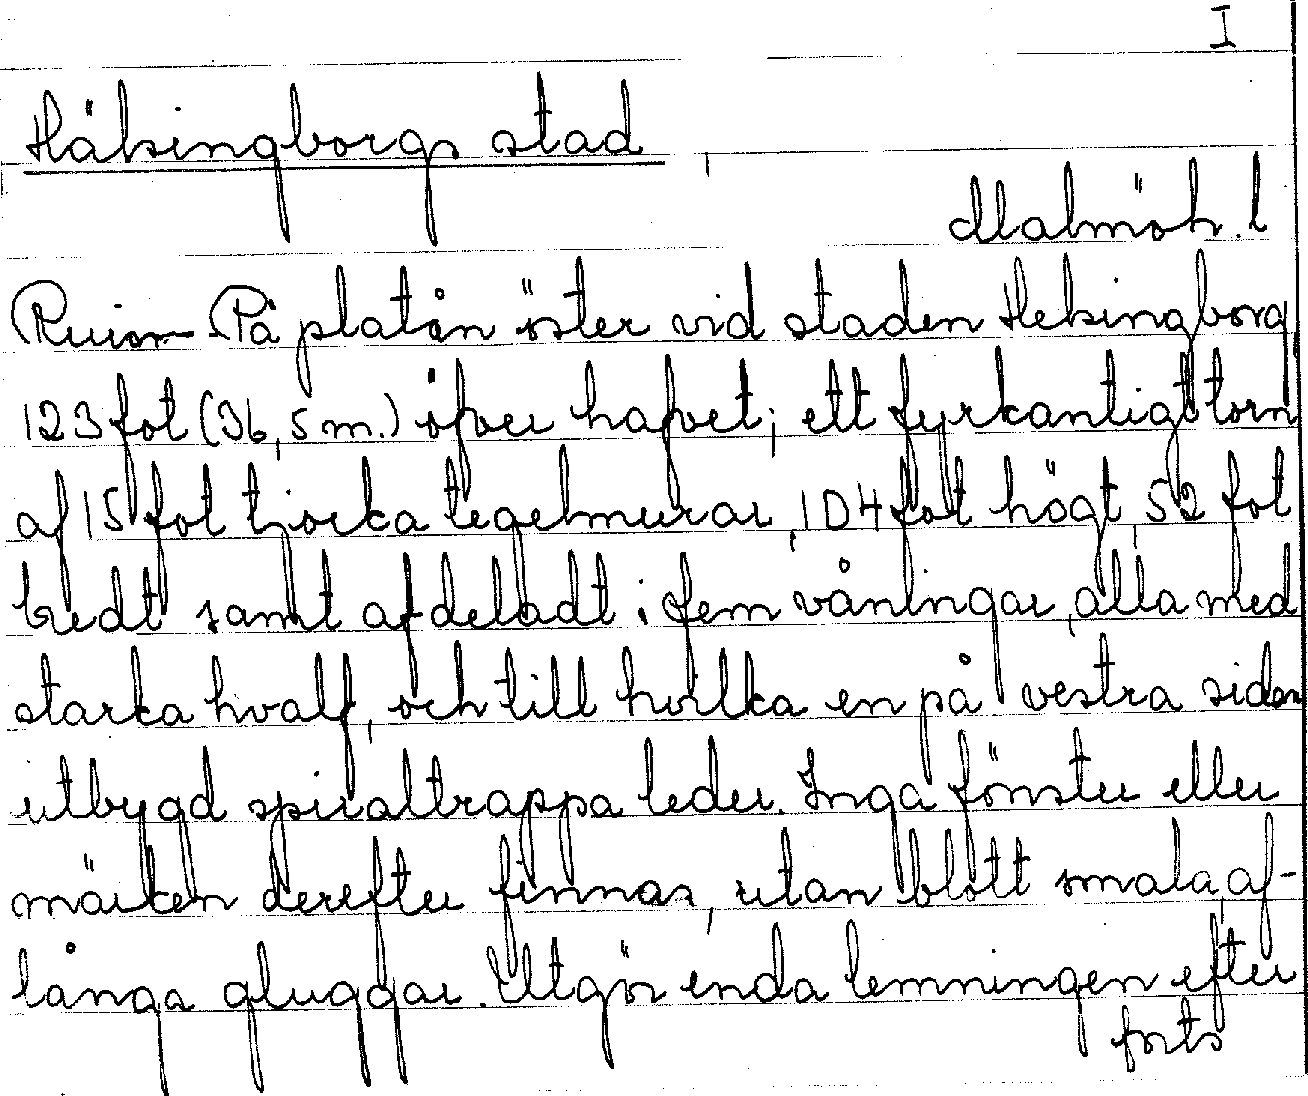 I
Hälsingborgs stad
Malmöh. l
Ruin På platån öster vid staden Helsingborg
123 fot (36,5 m.) öfver hafvet; ett fyrkantigt torn
af 15 fot tjocka tegelmurar, 104 fot högt, 52 fot
bredt samt afdeladt i fem våningar, alla med
starka hvalf, och till hvilka en på vestra sidan
utbygd spiraltrappa leder. Inga fönster eller
märken derefter finnas, utan blott smala, af-
långa gluggar. Utgör enda lemningen efter
forts